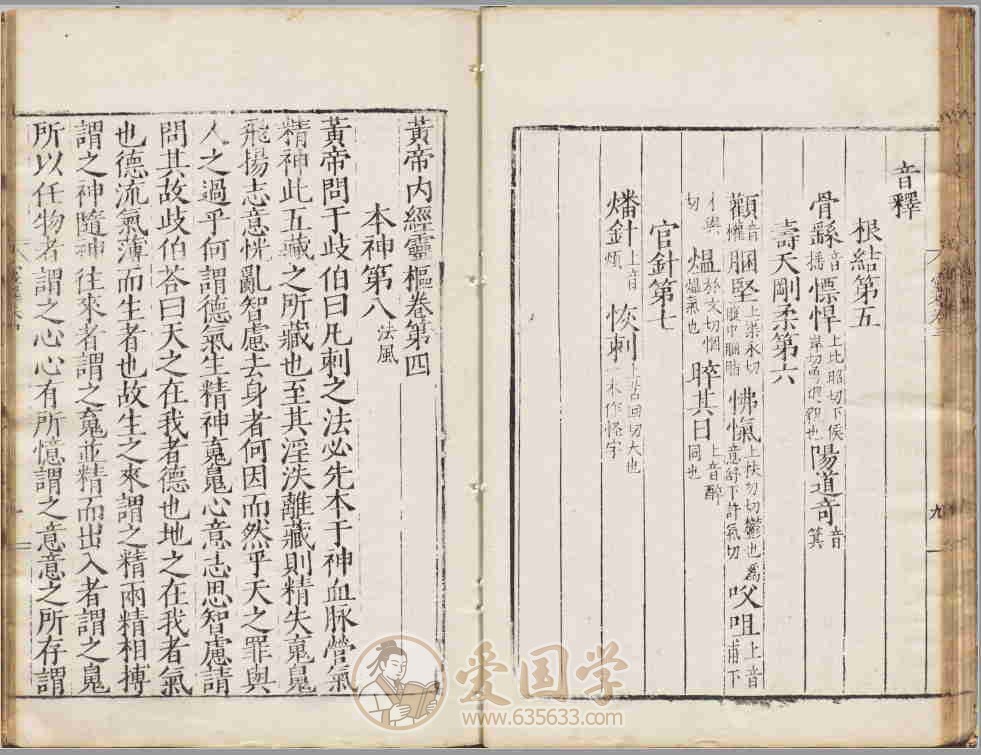 音釋
根結第五
骨繇音揺慓悍上比昭切下侯岸切勇也陽道奇音箕
壽夭剛柔第六
顴音權䐃堅上渠永切腹中䐃脂怫愾上扶勿切鬱也下許氣切㕮咀上音甫下
切熅於文切烟熅氣也晬其日上音醉同也
官針第七
燔針上音煩恢刺上苦回切大也一本作怪字
黃帝内經靈樞卷第四
本神第八法風
黃帝問于歧伯曰凡刺之法必先本于神血脉營氣
精神此五藏之所藏也至其淫泆離藏則精失䰟䰠
飛揚志意恍亂智慮去身者何因而然乎天之罪與
人之過乎何謂德氣生精神䰟䰠心意志思智慮請
問其故歧伯荅曰天之在我者德也地之在我者氣
也德流氣薄而生者也故生之來謂之精兩精相搏
謂之神隨神往來者謂之䰟並精而出入者謂之䰠
所以任物者謂之心心有所憶謂之意意之所存謂
爱国学
www.635633.com